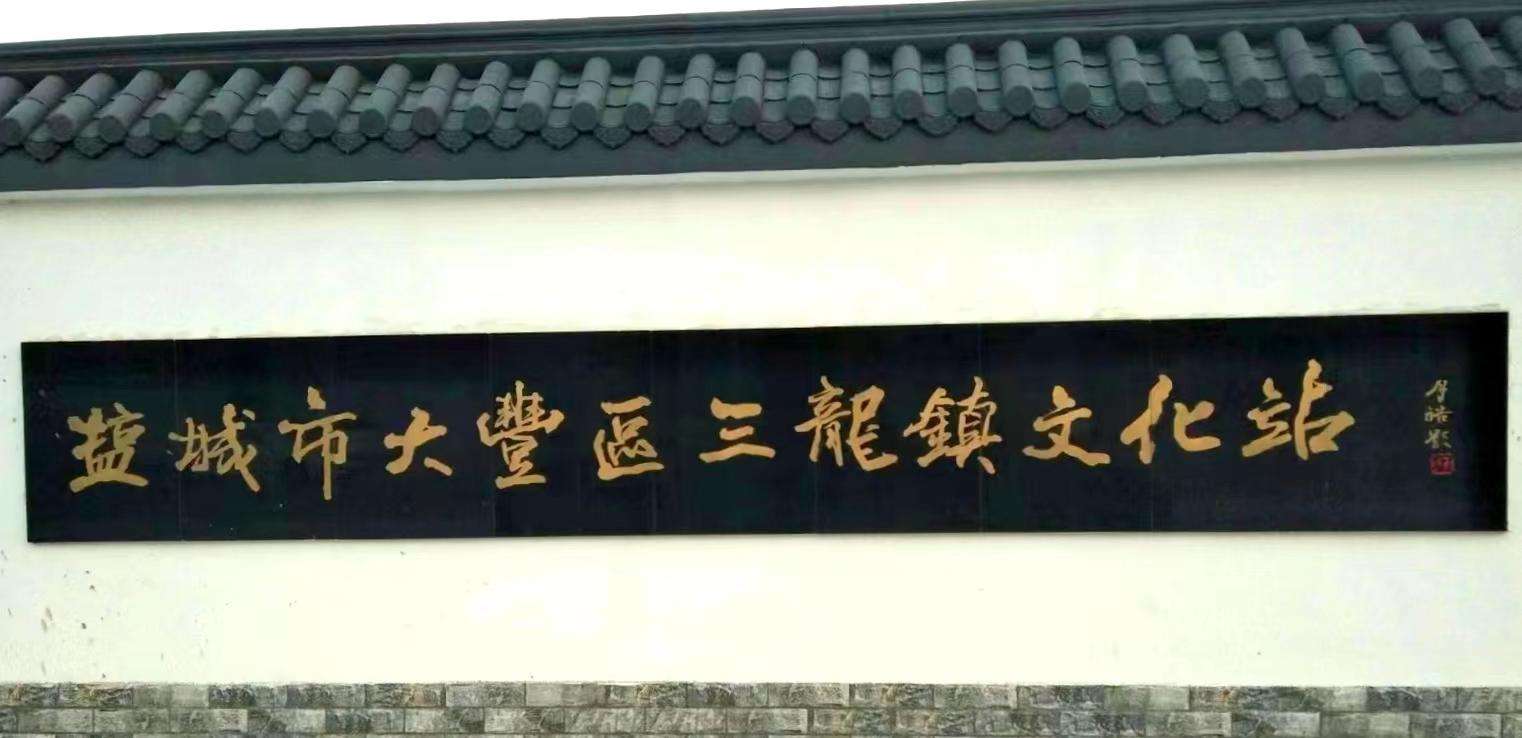 盐城市大豐區三龍鎮文化站